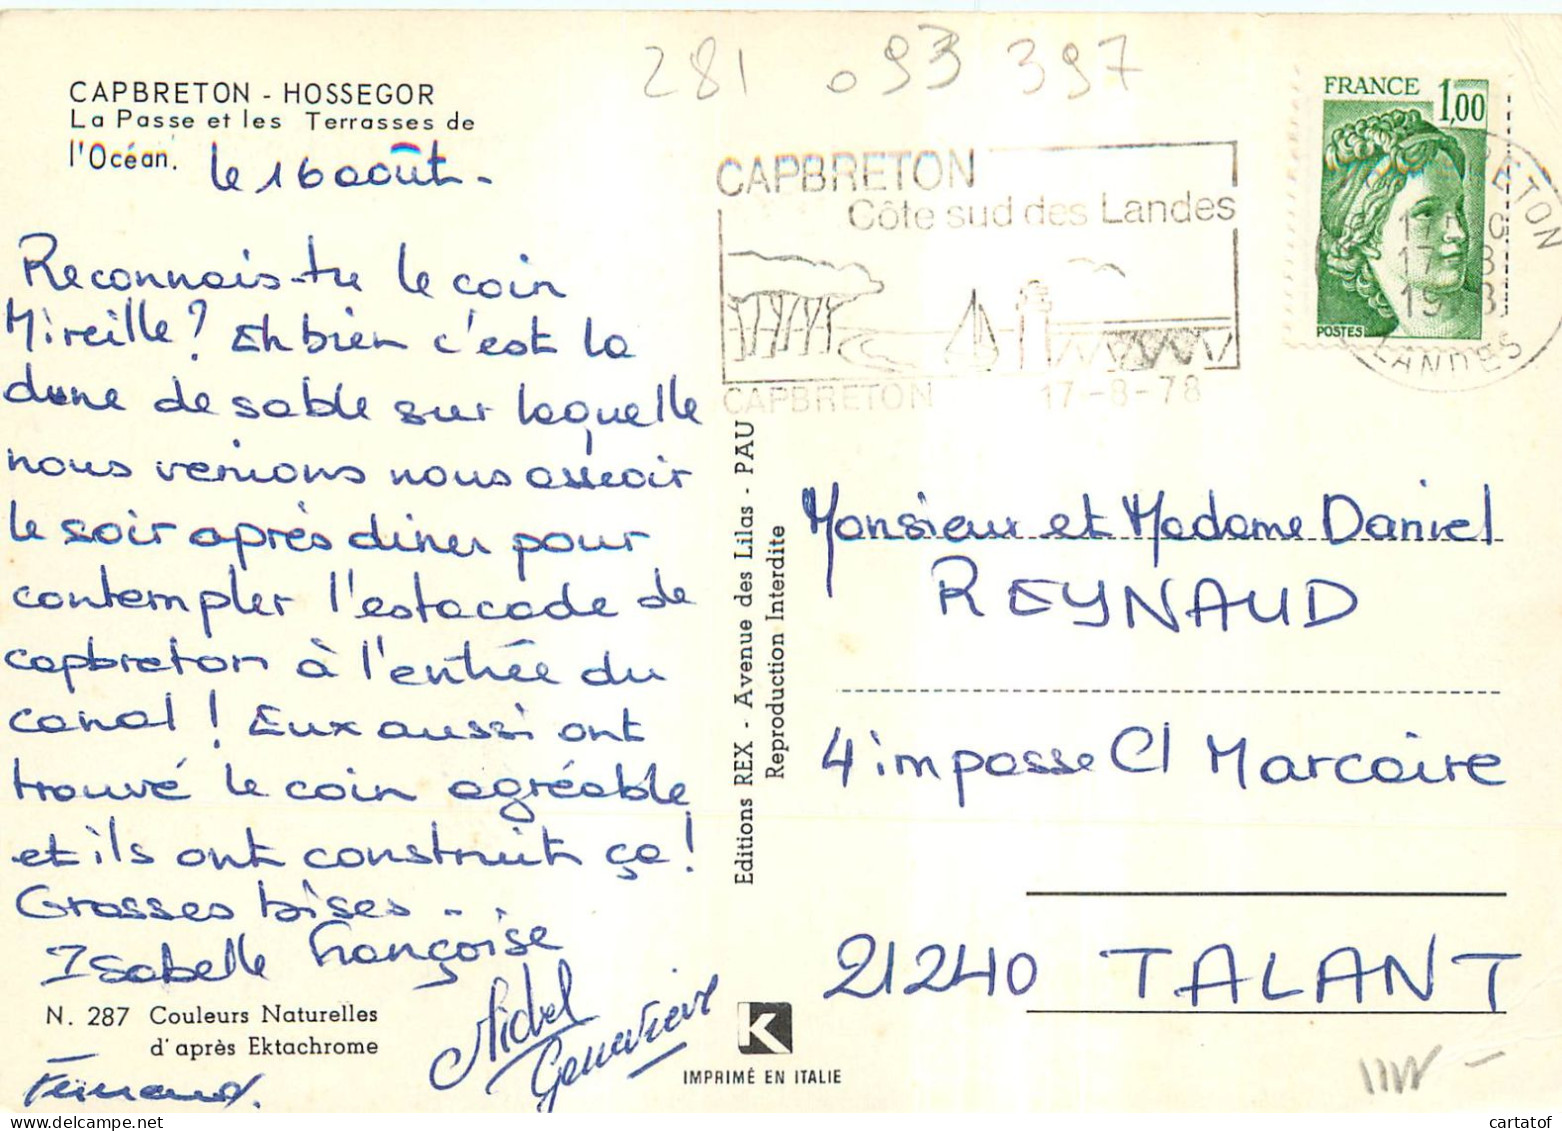 281 093 397
CAPBRETON - HOSSEGOR
La Passe et les Terrasses de
l'Océan.
le 16 août -
Reconnais-tu le coin
Mireille? Eh bien c'est la
dune de sable sur laquelle
nous venions nous asseoir
le soir après diner pour
contempler l'estacade de
capbreton à l'entrée du
canal! Eux aussi ont
trouvé le coin agréable
et ils ont construit ça!
Grosses bises - -
Isabelle Françoise
Michel
Geneviève
Fernand.
N. 287 Couleurs Naturelles
d'après Ektachrome
CAPBRETON
Côte sud des Landes
CAPBRETON 17-8-78
FRANCE 1,00
POSTES
LANDES
Editions REX - Avenue des Lilas - PAU
Reproduction Interdite
Monsieur et Madame Daniel
REYNAUD
4 impasse Cl Marcaire
21240 TALANT
K
IMPRIMÉ EN ITALIE
cartatof